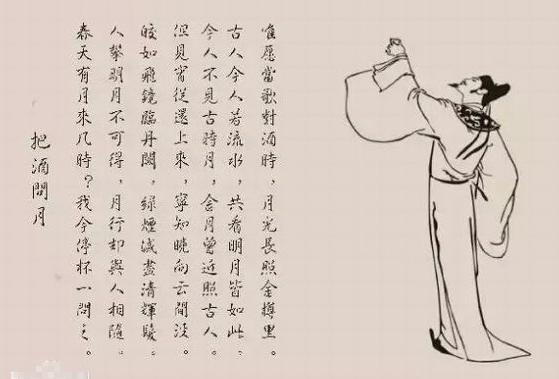 把酒問月
春天有月來几時？我今停杯一問之。
人攀明月不可得，月行却與人相隨。
皎如飛鏡臨丹闕，綠煙滅盡清輝
但見宵從還上來，寧知曉向云間沒。
今人不見古時月，今月曾近照古人。
古人今人若流水，共看明月皆如此。
唯愿當歌對酒時，月光長照金樽里。